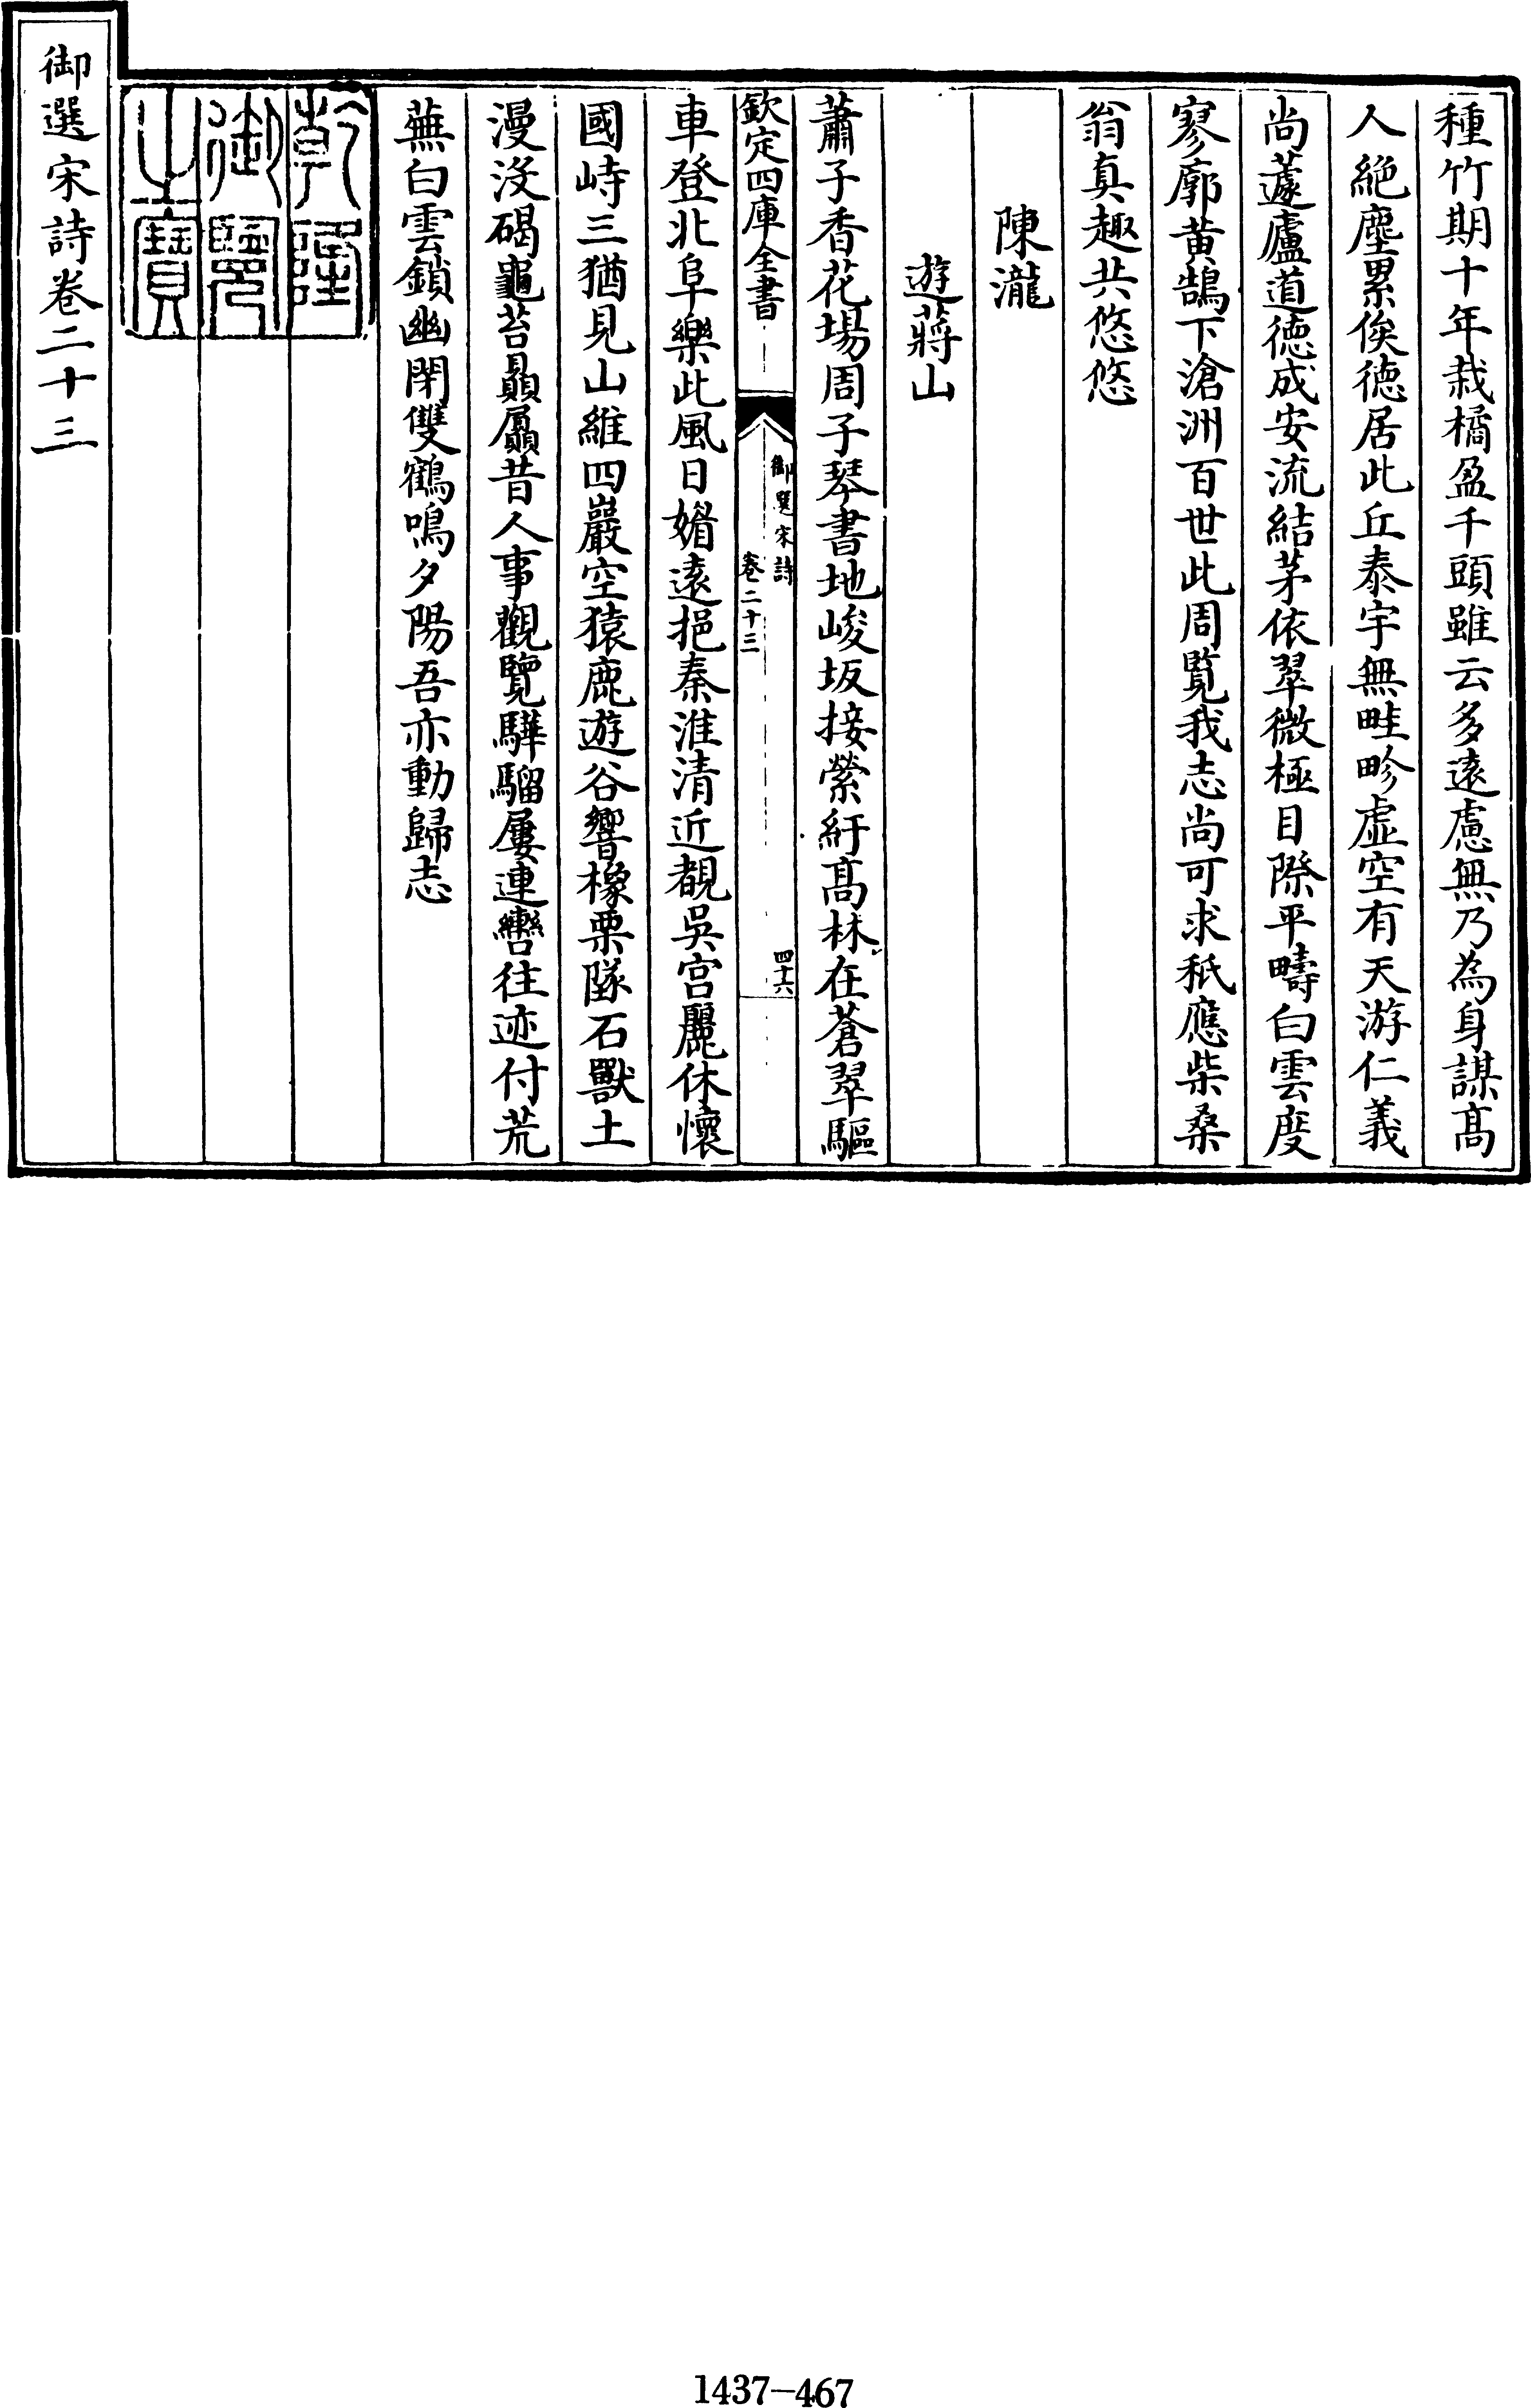 種竹期十年栽橘盈千頭雖云多遠慮無乃為身謀髙
人絶塵累俟徳居此丘泰宇無畦畛虚空有天游仁義
尚蘧廬道徳成安流結茅依翠微極目際平疇白雲度
寥廓黄鵠下滄洲百世此周覧我志尚可求秖應柴桑
翁真趣共悠悠
陳瀧
遊蔣山
蕭子香花場周子琴書地峻坂接縈紆髙林在蒼翠驅
欽定四庫全書
御選宋詩
卷二十三
四十六
車登北阜樂此風日媚遠挹秦淮清近覩吳宫麗休懷
國峙三猶見山維四巖空猿鹿遊谷響橡栗墜石獸土
漫沒碣龜苔贔屭昔人事觀覽驊騮屢連轡往迹付荒
蕪白雲鎖幽閑雙鶴鳴夕陽吾亦動歸志
乾隆
御覽
之寶
御選宋詩卷二十三
1437-467